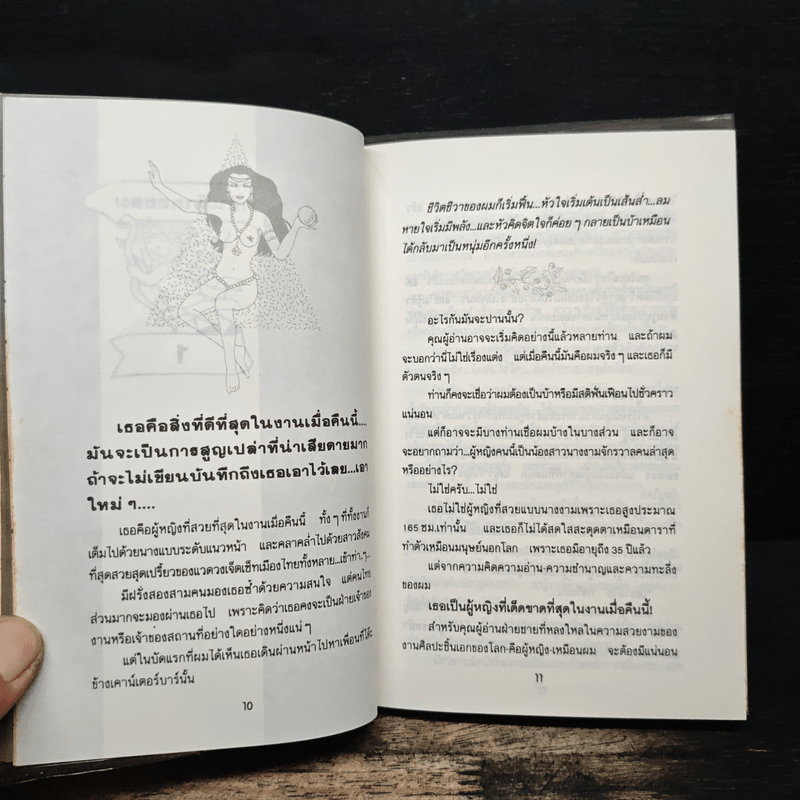 เธอคือสิ่งที่ดีที่สุดในงานเมื่อคืนนี้....
มันจะเป็นการสูญเปล่าที่น่าเสียดายมาก
ถ้าจะไม่เขียนบันทึกถึงเธอเอาไว้เลย...เอา
ใหม่ ๆ....
เธอคือผู้หญิงที่สวยที่สุดในงานเมื่อคืนนี้ ทั้ง ๆ ที่ทั้งงานก็
เต็มไปด้วยนางแบบระดับแนวหน้า และคลาคล่ำไปด้วยสาวสังคม
ที่สุดสวยสุดเปรี้ยวของแวดวงเจ็ตเซ็ทเมืองไทยทั้งหลาย...เช้าท่า..ๆ..
มีฝรั่งสองสามคนมองเธอซ้ำด้วยความสนใจ แต่คนไทย
ส่วนมากจะมองผ่านเธอไป เพราะคิดว่าเธอคงจะเป็นฝ่ายเจ้าของ
งานหรือเจ้าของสถานที่อย่างใดอย่างหนึ่งแน่ ๆ
แต่ในบัดแรกที่ผมได้เห็นเธอเดินผ่านหน้าไปหาเพื่อนที่โต๊ะ
ข้างเคาน์เตอร์บาร์นั้น
10
ชีวิตชีวาของผมก็เริ่มฟื้น...หัวใจเริ่มเต้นเป็นเส้นส่ำ...ลม
หายใจเริ่มมีพลัง...และหัวคิดจิตใจก็ค่อย ๆ กลายเป็นบ้าเหมือน
ได้กลับมาเป็นหนุ่มอีกครั้งหนึ่ง!
อะไรกันมันจะปานนั้น?
คุณผู้อ่านอาจจะเริ่มคิดอย่างนี้แล้วหลายท่าน และถ้าผม
จะบอกว่านี่ไม่ใช่เรื่องแต่ง แต่เมื่อคืนนี้มันคือผมจริง ๆ และเธอก็มี
ตัวตนจริง ๆ
ท่านก็คงจะเชื่อว่าผมต้องเป็นบ้าหรือมีสติฟั่นเฟือนไปชั่วคราว
แน่นอน
แต่ก็อาจจะมีบางท่านเชื่อผมบ้างในบางส่วน และก็อาจ
จะอยากถามว่า...ผู้หญิงคนนี้เป็นน้องสาวนางงามจักรวาลคนล่าสุด
หรืออย่างไร?
ไม่ใช่ครับ...ไม่ใช่
เธอไม่ใช่ผู้หญิงที่สวยแบบนางงามเพราะเธอสูงประมาณ
165 ซม.เท่านั้น และเธอก็ไม่ได้สดใสสะดุดตาเหมือนดาราที่
ทำตัวเหมือนมนุษย์นอกโลก เพราะเธอมีอายุถึง 35 ปีแล้ว
แต่จากความคิดความอ่าน·ความชำนาญและความทะลึ่ง
ของผม
เธอเป็นผู้หญิงที่เด็ดขาดที่สุดในงานเมื่อคืนนี้!
สำหรับคุณผู้อ่านฝ่ายชายที่หลงใหลในความสวยงามของ
งานศิลปะชิ้นเอกของโลก·คือผู้หญิง·เหมือนผม จะต้องมีแน่นอน
11